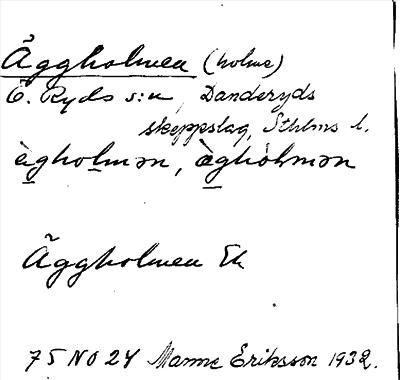 Äggholmen (holme)
Ö. Ryds s:n, Danderyds
skeppslag, Sthlms l.
ègholmən, ègholmən
Äggholmen Ek
75 NO 24 Manne Eriksson 1932.